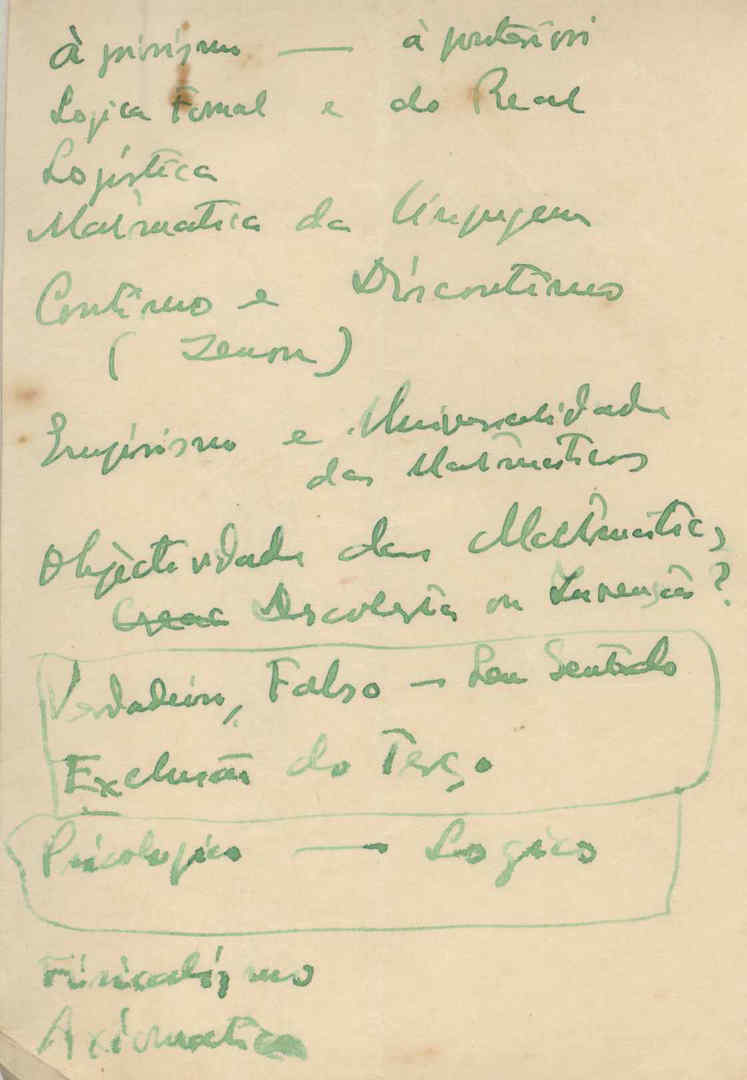 à priorismo — à posteriori
Logica Formal e do Real
Logística
Matematica da linguagem
Contínuo e Díscontínuo
(Zenon)
Empirismo e Universalidade
das Matemáticas
Objectividade das Matemáticas
Descoberta ou Invenção?
Verdadeiro, Falso — Sem Sentido
Exclusão do Terço
Psicologico — Logico
Fisicalismo
Axiomatica